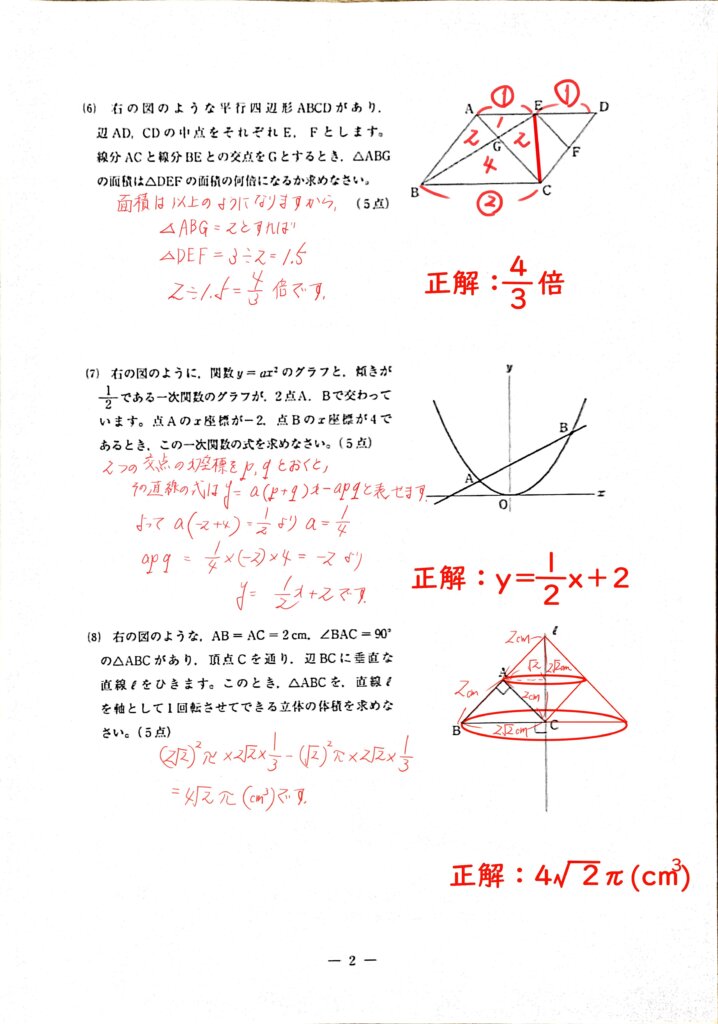 (6) 右の図のような平行四辺形ABCDがあり，
辺AD，CDの中点をそれぞれE，Fとします。
線分ACと線分BEとの交点をGとするとき，△ABG
の面積は△DEFの面積の何倍になるか求めなさい。
(5点)
面積は以上のようになりますから，
△ABG=2とすれば
△DEF=3÷2=1.5
2÷1.5=4/3 倍です。
① ①
A E D
1
2 G 2
4
F
B C
②
正解：4/3倍
(7) 右の図のように，関数y=ax²のグラフと，傾きが
1/2である一次関数のグラフが，2点A，Bで交わって
います。点Aのx座標が-2，点Bのx座標が4で
あるとき，この一次関数の式を求めなさい。(5点)
2つの交点のx座標をp,qとおくと，
その直線の式はy=a(p+q)x-apqと表せます.
よって a(-2+4)=1/2 より a=1/4
apq = 1/4×(-2)×4=-2 より
y= 1/2x+2です.
y
B
A
O
x
正解：y=1/2x+2
(8) 右の図のような，AB=AC=2cm，∠BAC=90°
の△ABCがあり，頂点Cを通り，辺BCに垂直な
直線ℓをひきます。このとき，△ABCを，直線ℓ
を軸として1回転させてできる立体の体積を求めな
さい。(5点)
(2√2)²π×2√2×1/3-(√2)²π×2√2×1/3
=4√2π(cm³)です.
ℓ
2cm
√2 2√2cm
A
2cm 2cm
B C
2√2cm
正解：4√2π(cm³)
— 2 —